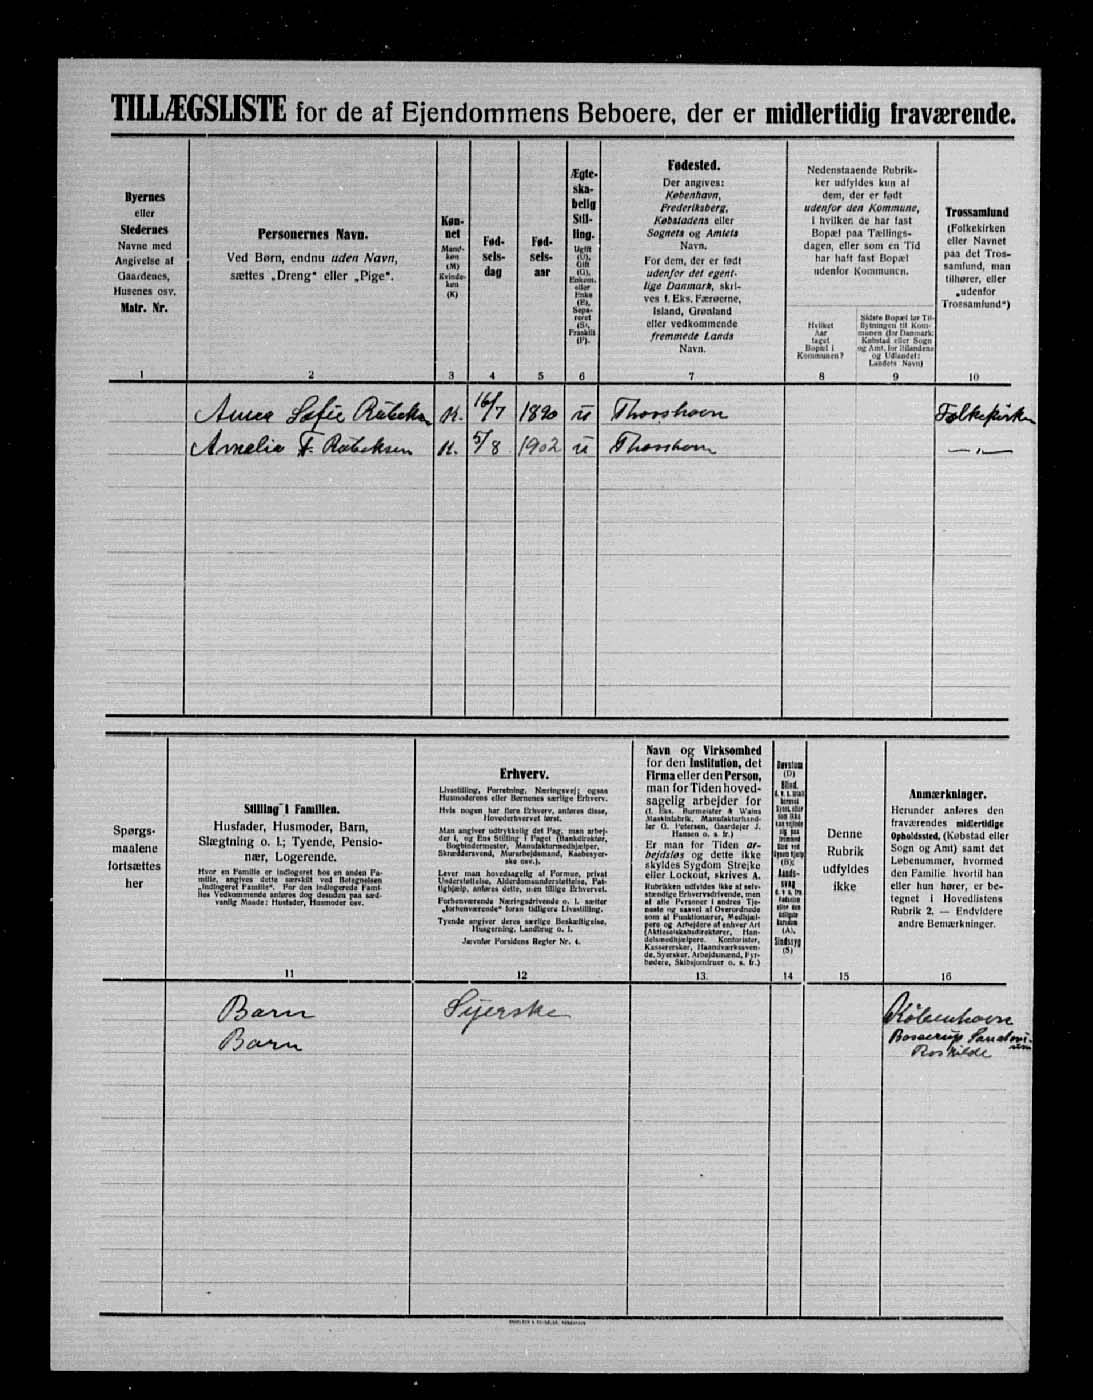 TILLÆGSLISTE for de af Ejendommens Beboere, der er midlertidig fraværende.
Byernes
eller
Stedernes
Navne med
Angivelse af
Gaardenes,
Husenes osv.
Matr. Nr.
1
Personernes Navn.
Ved Børn, endnu uden Navn,
sættes „Dreng“ eller „Pige“.
2
Køn-
net
Mand-
køn
(M)
Kvinde-
køn
(K)
3
Fød-
sels-
dag
4
Fød-
sels-
aar
5
Ægte-
ska-
belig
Stil-
ling.
Ugift
(U),
Gift
(G),
Enkem.
eller
Enke
(E),
Sepa-
reret
(S),
Fraskilt
(F).
6
Fødested.
Der angives:
København,
Frederiksberg,
Købstadens eller
Sognets og Amtets
Navn.
For dem, der er født
udenfor det egent-
lige Danmark, skri-
ves f. Eks. Færøerne,
Island, Grønland
eller vedkommende
fremmede Lands
Navn.
7
Nedenstaaende Rubrik-
ker udfyldes kun af
dem, der er født
udenfor den Kommune,
i hvilken de har fast
Bopæl paa Tællings-
dagen, eller som en Tid
har haft fast Bopæl
udenfor Kommunen.
Hvilket
Aar
taget
Bopæl i
Kommunen?
8
Sidste Bopæl før Til-
flytningen til Kom-
munen (for Danmark:
Købstad eller Sogn
og Amt, for Bilandene
og Udlandet:
Landets Navn)
9
Trossamfund
(Folkekirken
eller Navnet
paa det Tros-
samfund, man
tilhører, eller
„udenfor
Trossamfund“)
10
Anna Sofie K. 16/7 1890 U Thorshavn Folkekirken
Amalia F. K. 5/8 1902 U Thorshavn —„—
Spørgs-
maalene
fortsættes
her
Stilling i Familien.
Husfader, Husmoder, Barn,
Slægtning o. l.; Tyende, Pensio-
nær, Logerende.
Hvor en Familie er indlogeret hos en anden Fa-
milie, angives dette særskilt ved Betegnelsen
„Indlogeret Familie“. For den indlogerede Fami-
lies Vedkommende anføres dog desuden paa sæd-
vanlig Maade: Husfader, Husmoder osv.
11
Erhverv.
Livsstilling, Forretning, Næringsvej; ogsaa
Husmoderens eller Børnenes særlige Erhverv.
Hvis nogen har flere Erhverv, anføres disse,
Hovederhvervet først.
Man angiver udtrykkelig det Fag, man arbej-
der i, og Ens Stilling i Faget (Bankdirektør,
Bogbindermester, Manufakturmedhjælper,
Skræddersvend, Murarbejdsmand, Kaabesyer-
ske osv.).
Lever man hovedsagelig af Formue, privat
Understøttelse, Alderdomsunderstøttelse, Fat-
tighjælp, anføres dette, uden tillige Erhvervet.
Forhenværende Næringsdrivende o. l. sætter
„forhenværende“ foran tidligere Livsstilling.
Tyende angiver deres særlige Beskæftigelse,
Husgerning, Landbrug o. l.
Jævnfør Forsidens Regler Nr. 4.
12
Navn og Virksomhed
for den Institution, det
Firma eller den Person,
man for Tiden hoved-
sagelig arbejder for
(f. Eks. Burmeister & Wains
Maskinfabrik, Manufakturhand-
ler G. Petersen, Gaardejer J.
Hansen o. s. fr.)
Er man for Tiden ar-
bejdsløs og dette ikke
skyldes Sygdom Strejke
eller Lockout, skrives A.
Rubrikken udfyldes ikke af selv-
stændige Erhvervsdrivende, men
af alle Personer i andres Tje-
neste og saavel af Overordnede
som af Funktionærer, Medhjæl-
pere og Arbejdere af enhver Art
(Aktieselskabsdirektører, Han-
delsmedhjælpere, Kontorister,
Kassererskør, Haandværkssven-
de, Syersker, Arbejdsmænd, Fyr-
bødere, Skibsjomfruer o. s. fr.)
13.
Døvstum
(D)
Blind,
(B);
Aands-
svag
(A),
Sindssyg
(S)
14
Denne
Rubrik
udfyldes
ikke
15
Anmærkninger.
Herunder anføres den
fraværendes midlertidige
Opholdssted, (Købstad eller
Sogn og Amt) samt det
Løbenummer, hvormed
den Familie, hvortil han
eller hun hører, er be-
tegnet i Hovedlistens
Rubrik 2. — Endvidere
andre Bemærkninger.
16
Barn Syerske København
Barn Bosserup Sanatori-
um
Roskilde